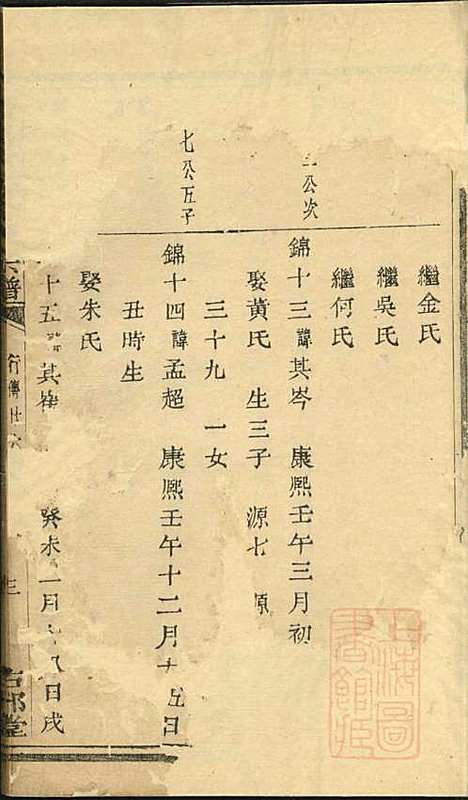 繼金氏
繼吳氏
繼何氏
公次
錦十三諱其岑 康熙壬午三月初
娶黃氏 生三子 源七 源
三十九 一女
七公五子
錦十四諱孟超 康熙壬午十二月十五日
丑時生
娶朱氏
十五 其 癸未 一月 日戌
譜
行傳廿六
上海圖書館藏